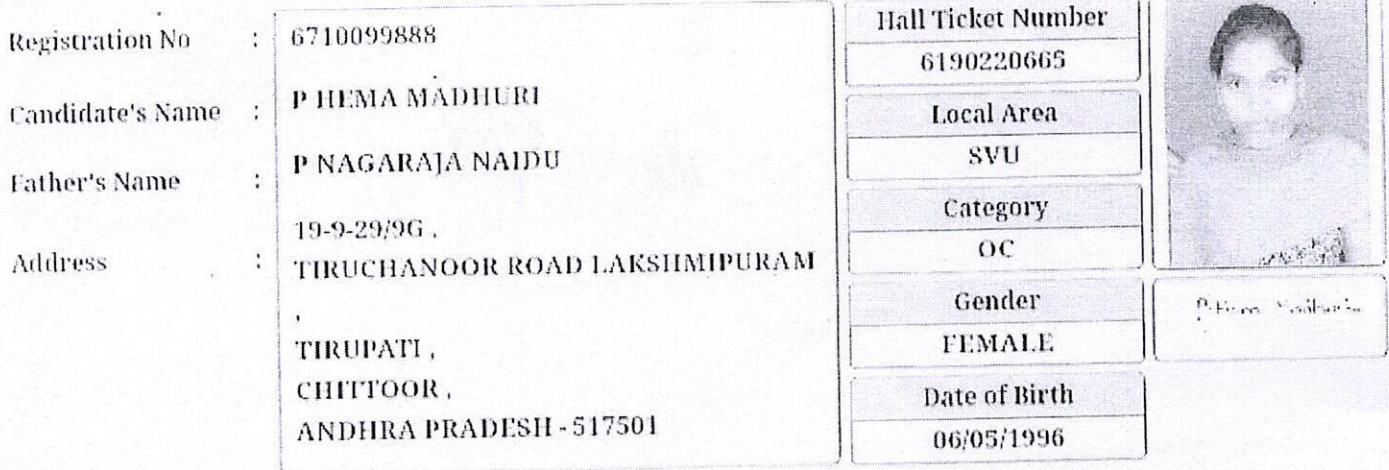 Registration No : 6710099888
Candidate's Name : P HEMA MADHURI
Father's Name : P NAGARAJA NAIDU
Address : 19-9-29/9G ,
TIRUCHANOOR ROAD LAKSHMIPURAM
,
TIRUPATI ,
CHITTOOR ,
ANDHRA PRADESH - 517501
Hall Ticket Number
6190220665
Local Area
SVU
Category
OC
Gender
FEMALE
Date of Birth
06/05/1996
P. Hema Madhuri